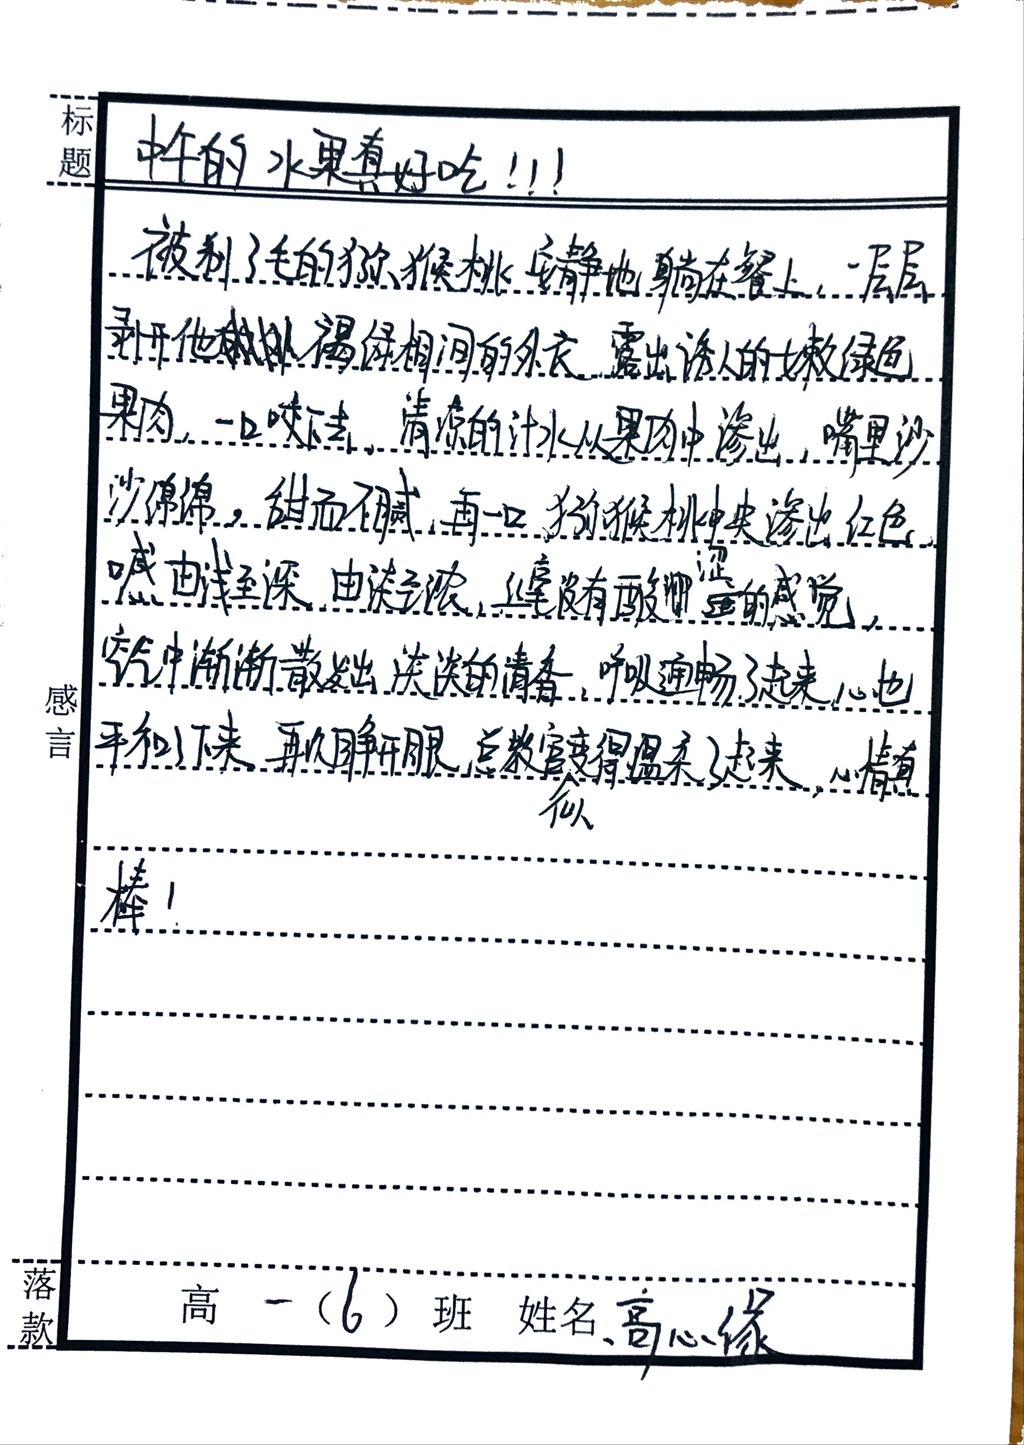 标题
中午的水果真好吃!!!
被剃了毛的猕猴桃安静地躺在餐上,一层层
剥开他褐绿相间的外衣,露出诱人的嫩绿色
果肉,一口咬下去,清凉的汁水从果肉中渗出,嘴里沙
沙绵绵,甜而不腻,再一口,猕猴桃中央渗出红色,
喊由浅至深,由淡至浓,丝毫没有酸涩的感觉,
空气中渐渐散发出淡淡的清香,呼吸通畅了起来,心也
平和了下来,再次睁开眼,总教官似变得温柔了起来,心情真
棒!
感言
落款
高一(6)班 姓名 高心缘